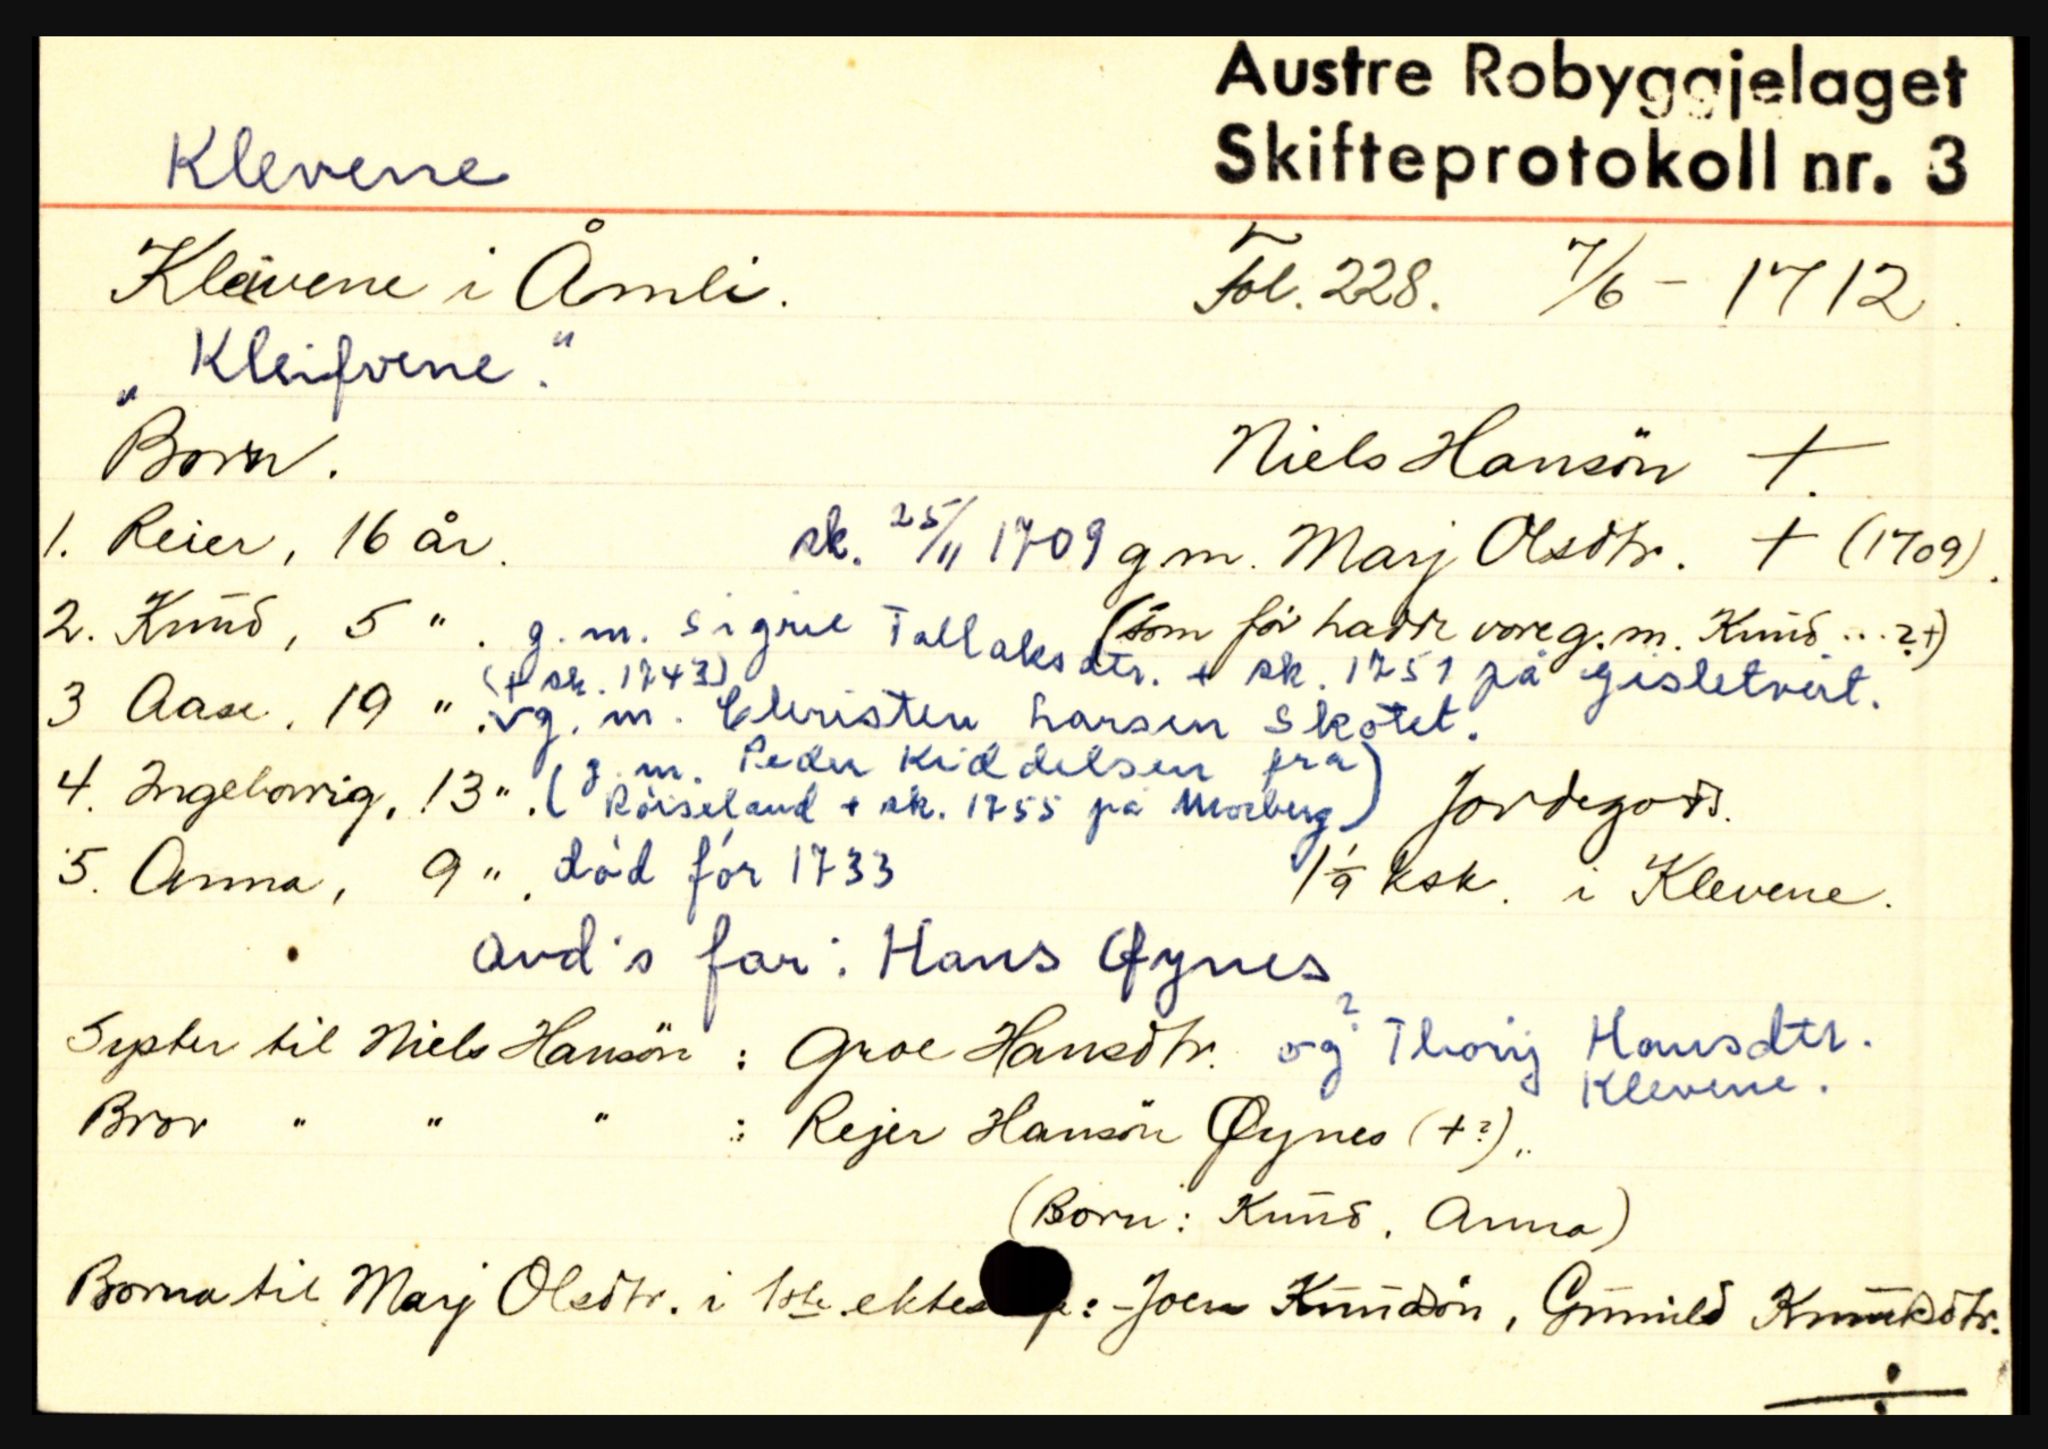 Austre Robyggjelaget
Klevene Skifteprotokoll nr. 3
Klävene i Åmli. Fol. 228. 7/6 - 1712.
"Kleifvene."
Born. Niels Hansön +.
1. Reier, 16 år. sk. 25/11 1709 g m. Marj Olsdtr. + (1709).
2. Knud, 5 ". g. m. Sigrie Tallaksdtr. + sk. 1751 på Gisletveit. (som för hadde vore g. m. Knud ...?+)
(+ sk. 1743)
3 Aase, 19 ". vg. m. Christen Larsen Skotet.
4. Ingeborrig, 13 ". (g. m. Peder Kiddelsen fra
Röiseland + sk. 1755 på Morberg) Jordegods.
5. Anna, 9 ". död för 1733 1 1/9 ksk. i Klevene.
avd's far: Hans Øynes
Syster til Niels Hansön : Groe Hansdtr. og? Thorij Hansdtr.
Klevene.
Bror " " " : Rejer Hansön Øynes (+?)..
(Born: Knud, Anna)
Borna til Marj Olsdtr. i 1ste ektes p: Joen Knudsön, Gunild Knudsdtr.
÷